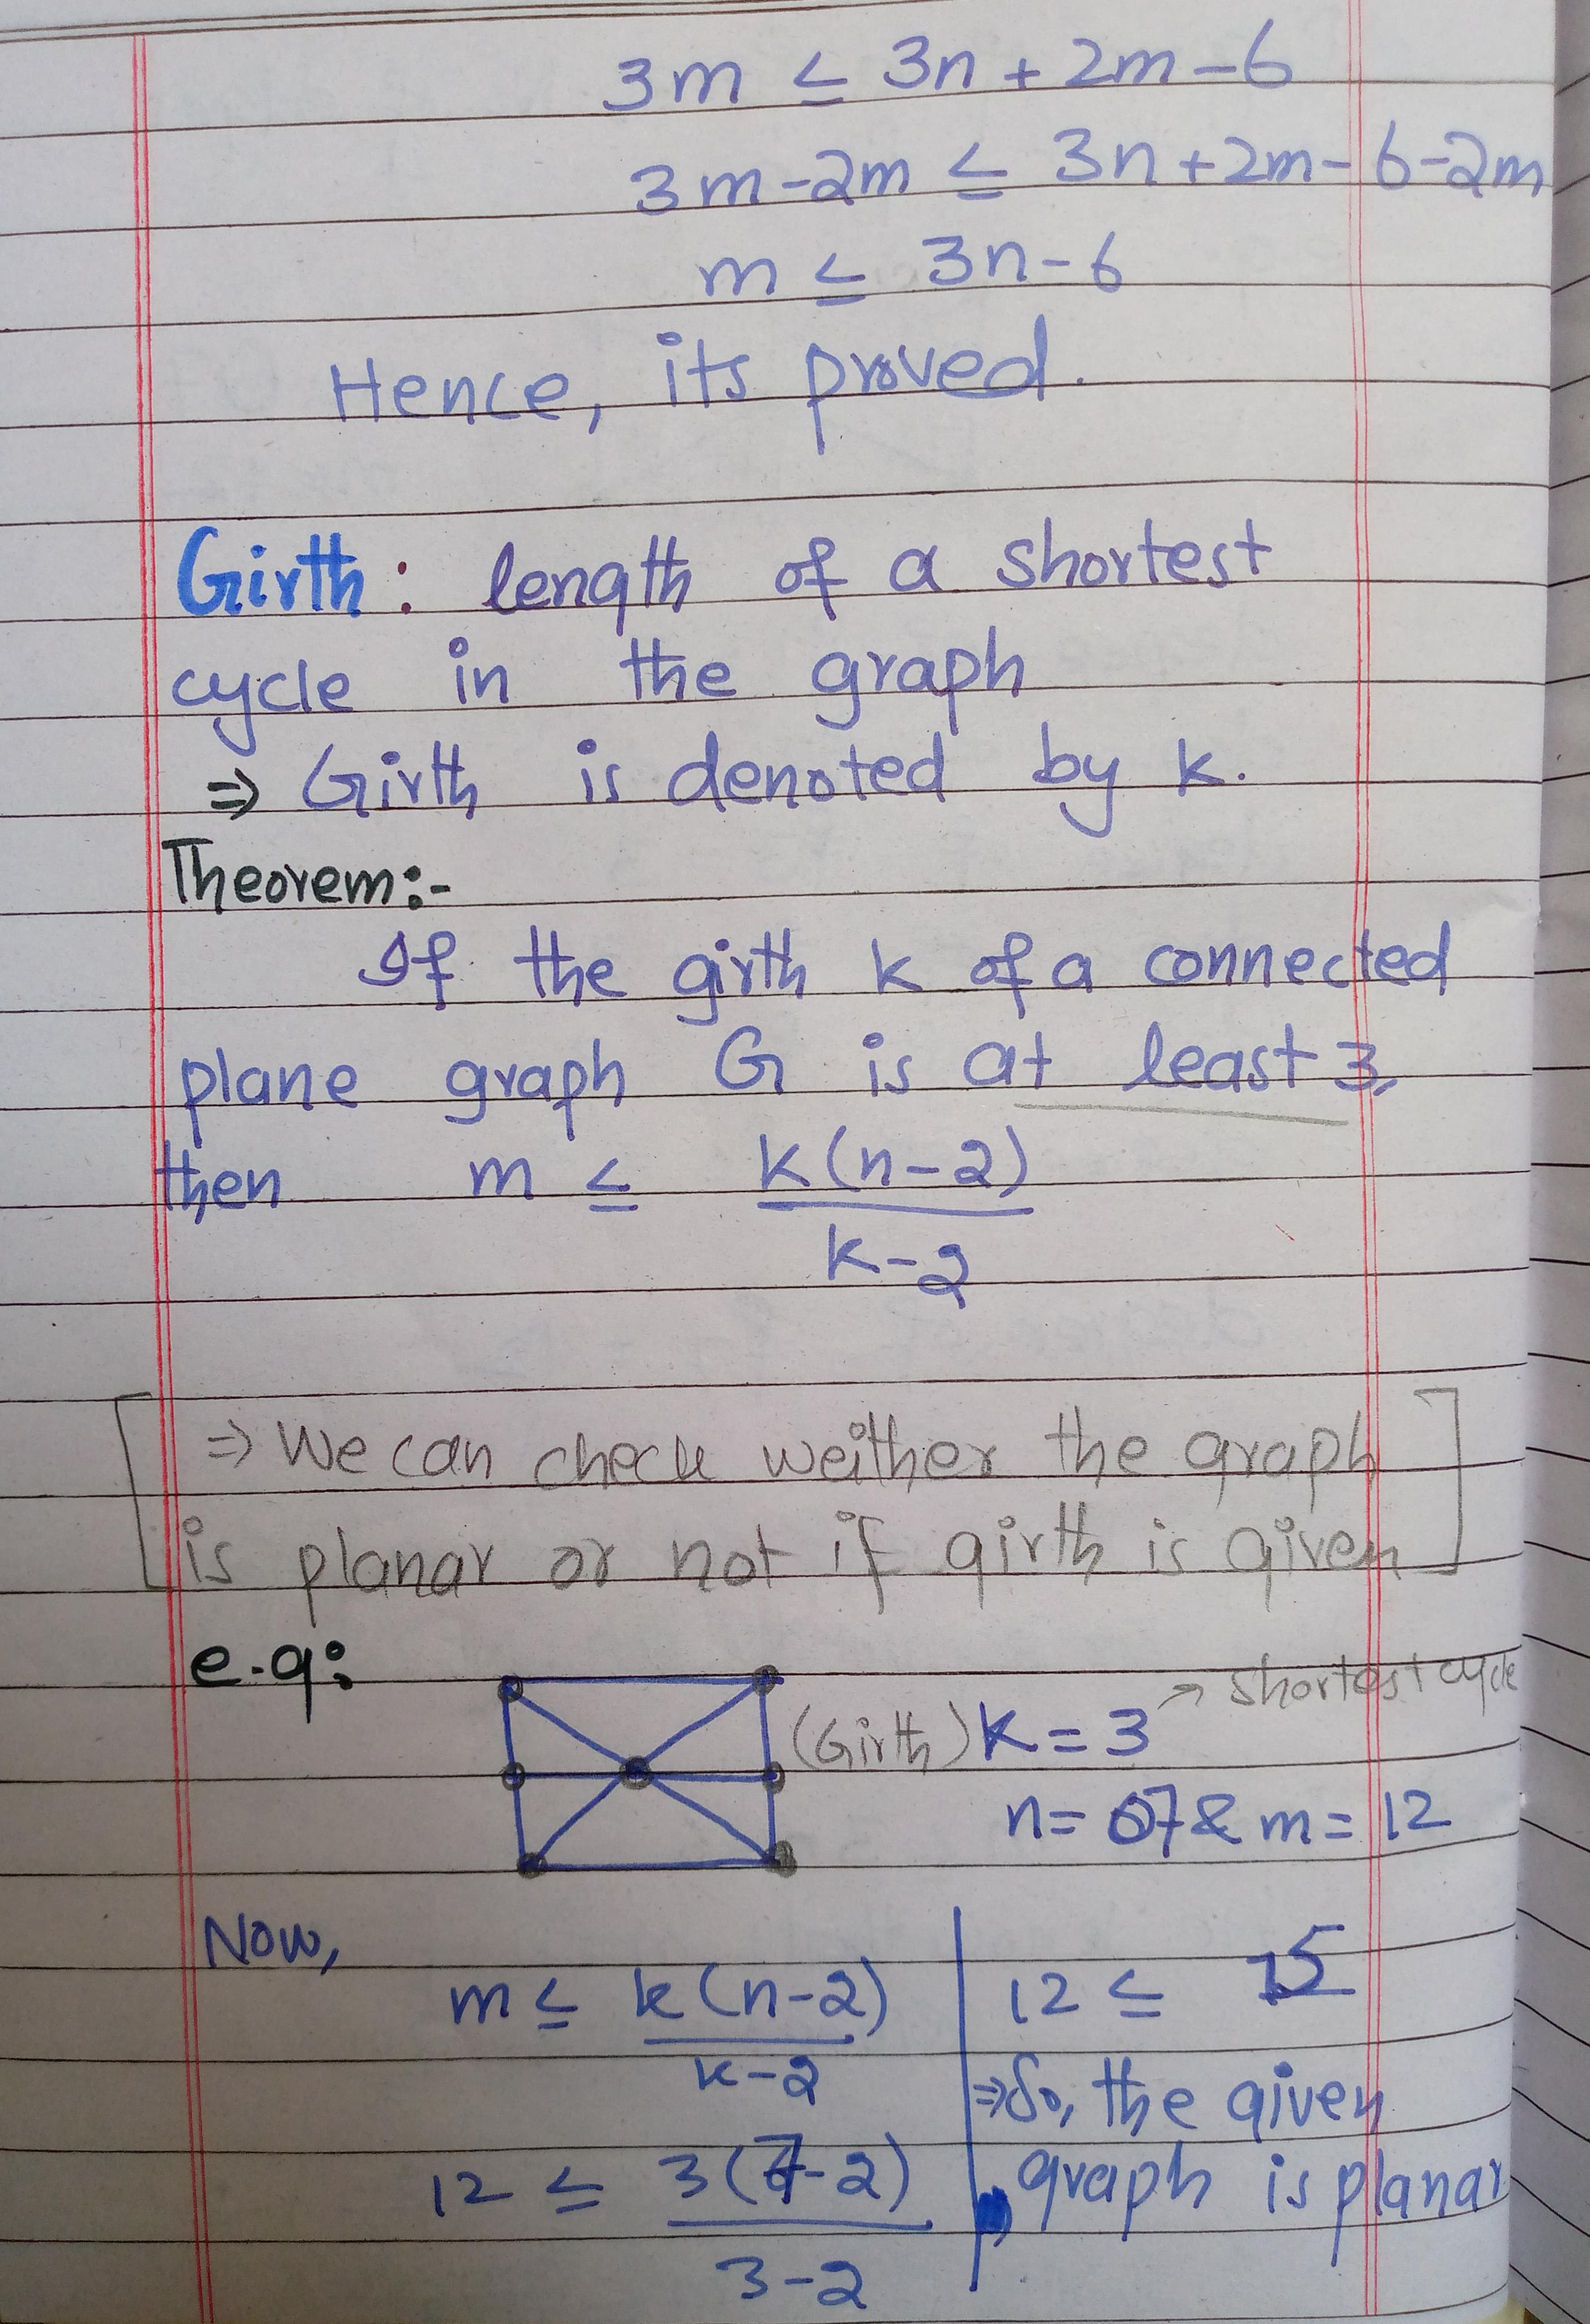 3m ≤ 3n + 2m - 6
3m - 2m ≤ 3n + 2m - 6 - 2m
m ≤ 3n - 6
Hence, its proved.
Girth: length of a shortest
cycle in the graph
⇒ Girth is denoted by k.
Theorem:-
If the girth k of a connected
plane graph G is at least 3,
then m ≤ k(n-2)
k-2
[⇒ We can check weither the graph
is planar or not if girth is given]
e.g:
(Girth) K = 3 → shortest cycle
n = 07 & m = 12
Now,
m ≤ k(n-2)
k-2
12 ≤ 3(7-2)
3-2
12 ≤ 15
⇒ So, the given
graph is planar